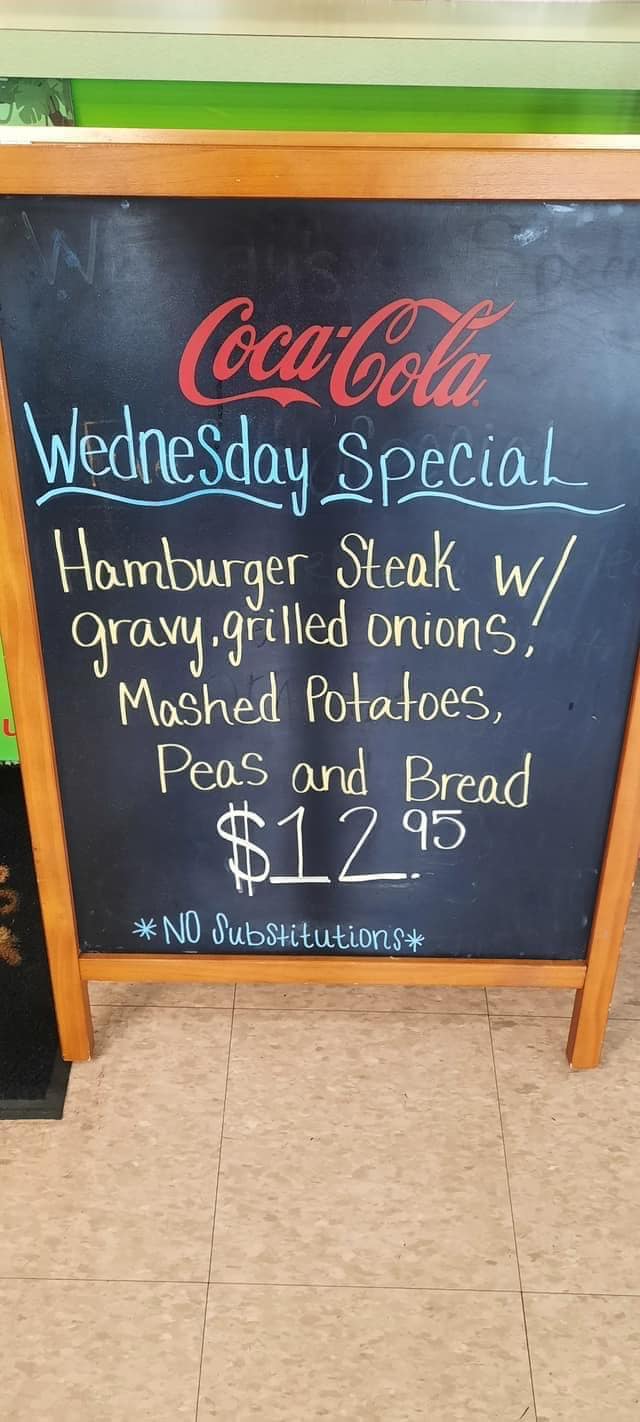 Coca-Cola
Wednesday Special
Hamburger Steak w/
gravy, grilled onions,
Mashed Potatoes,
Peas and Bread
$12.95
*NO Substitutions*